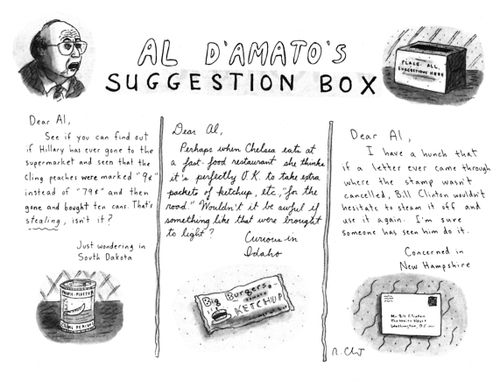 AL D'AMATO'S
SUGGESTION BOX
PLACE ALL
SUGGESTIONS HERE
Dear Al,
See if you can find out
if Hillary has ever gone to the
supermarket and seen that the
cling peaches were marked "9¢"
instead of "79¢" and then
gone and bought ten cans. That's
stealing, isn't it?
Just wondering in
South Dakota
Dear Al,
Perhaps when Chelsea eats at
a fast-food restaurant she thinks
it's perfectly O.K. to take extra
packets of ketchup, etc., "for the
road." Wouldn't it be awful if
something like that were brought
to light?
Curious in
Idaho
Big
Burgers
TOMATO
KETCHUP
Dear Al,
I have a hunch that
if a letter ever came through
where the stamp wasn't
cancelled, Bill Clinton wouldn't
hesitate to steam it off and
use it again. I'm sure
someone has seen him do it.
Concerned in
New Hampshire
Mr. Bill Clinton
Washington, D.C.
R. Chast